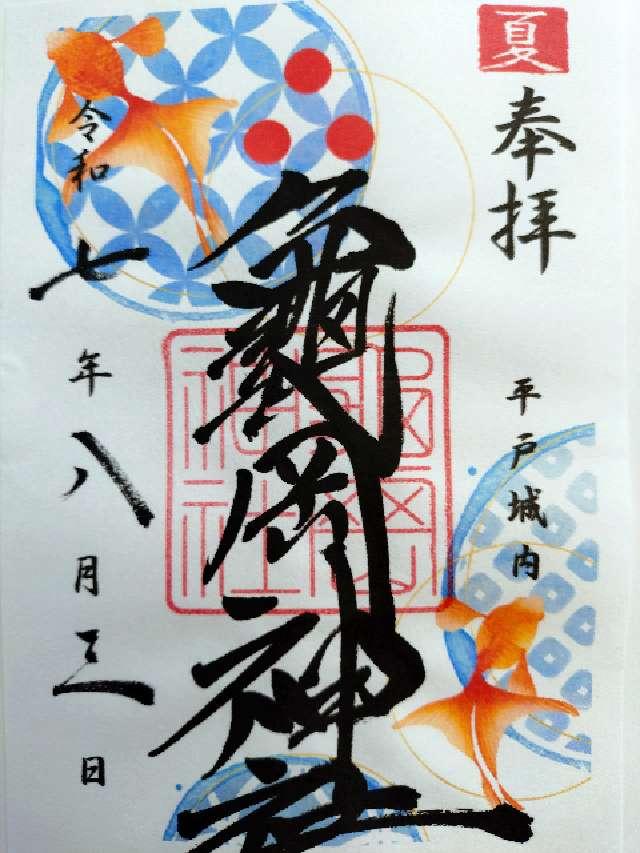 夏
奉拝
平戸城内
亀岡神社
龜岡神社
令和七年八月三日